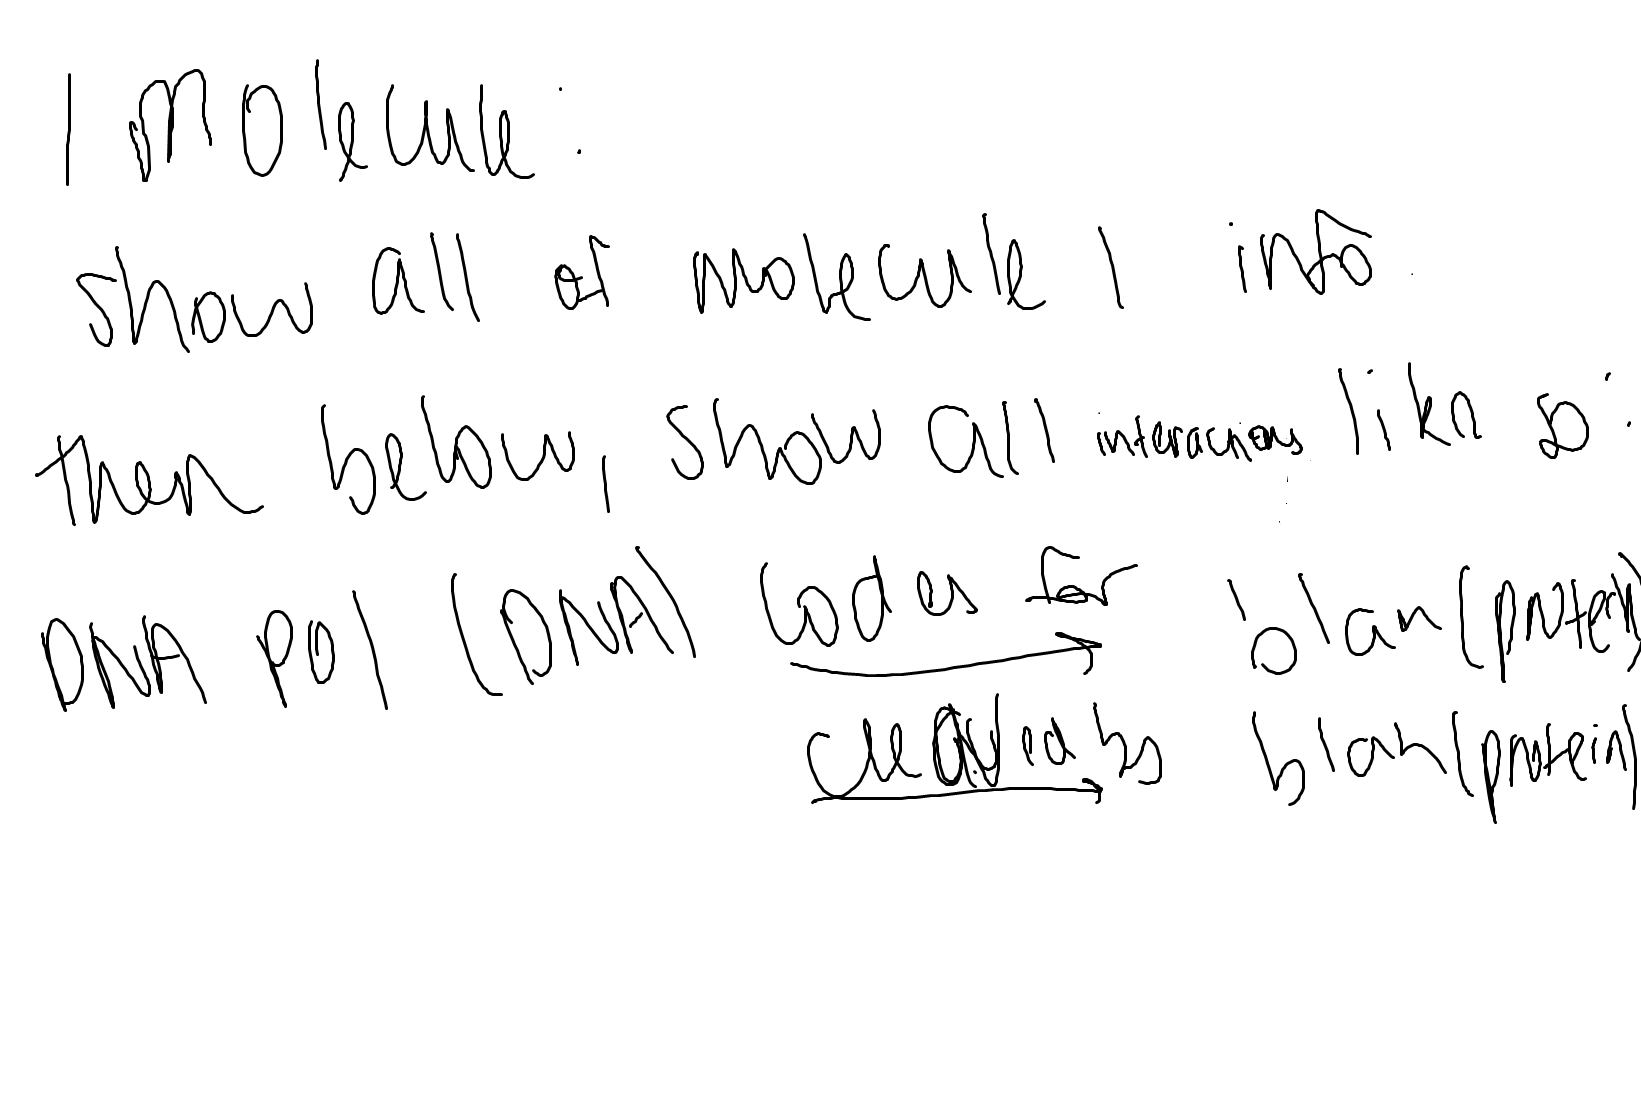 1 molecule:
show all of molecule 1 info.
then below, show all interactions like so:
DNA pol (DNA) codes for blah (protein)
created by blah (protein)